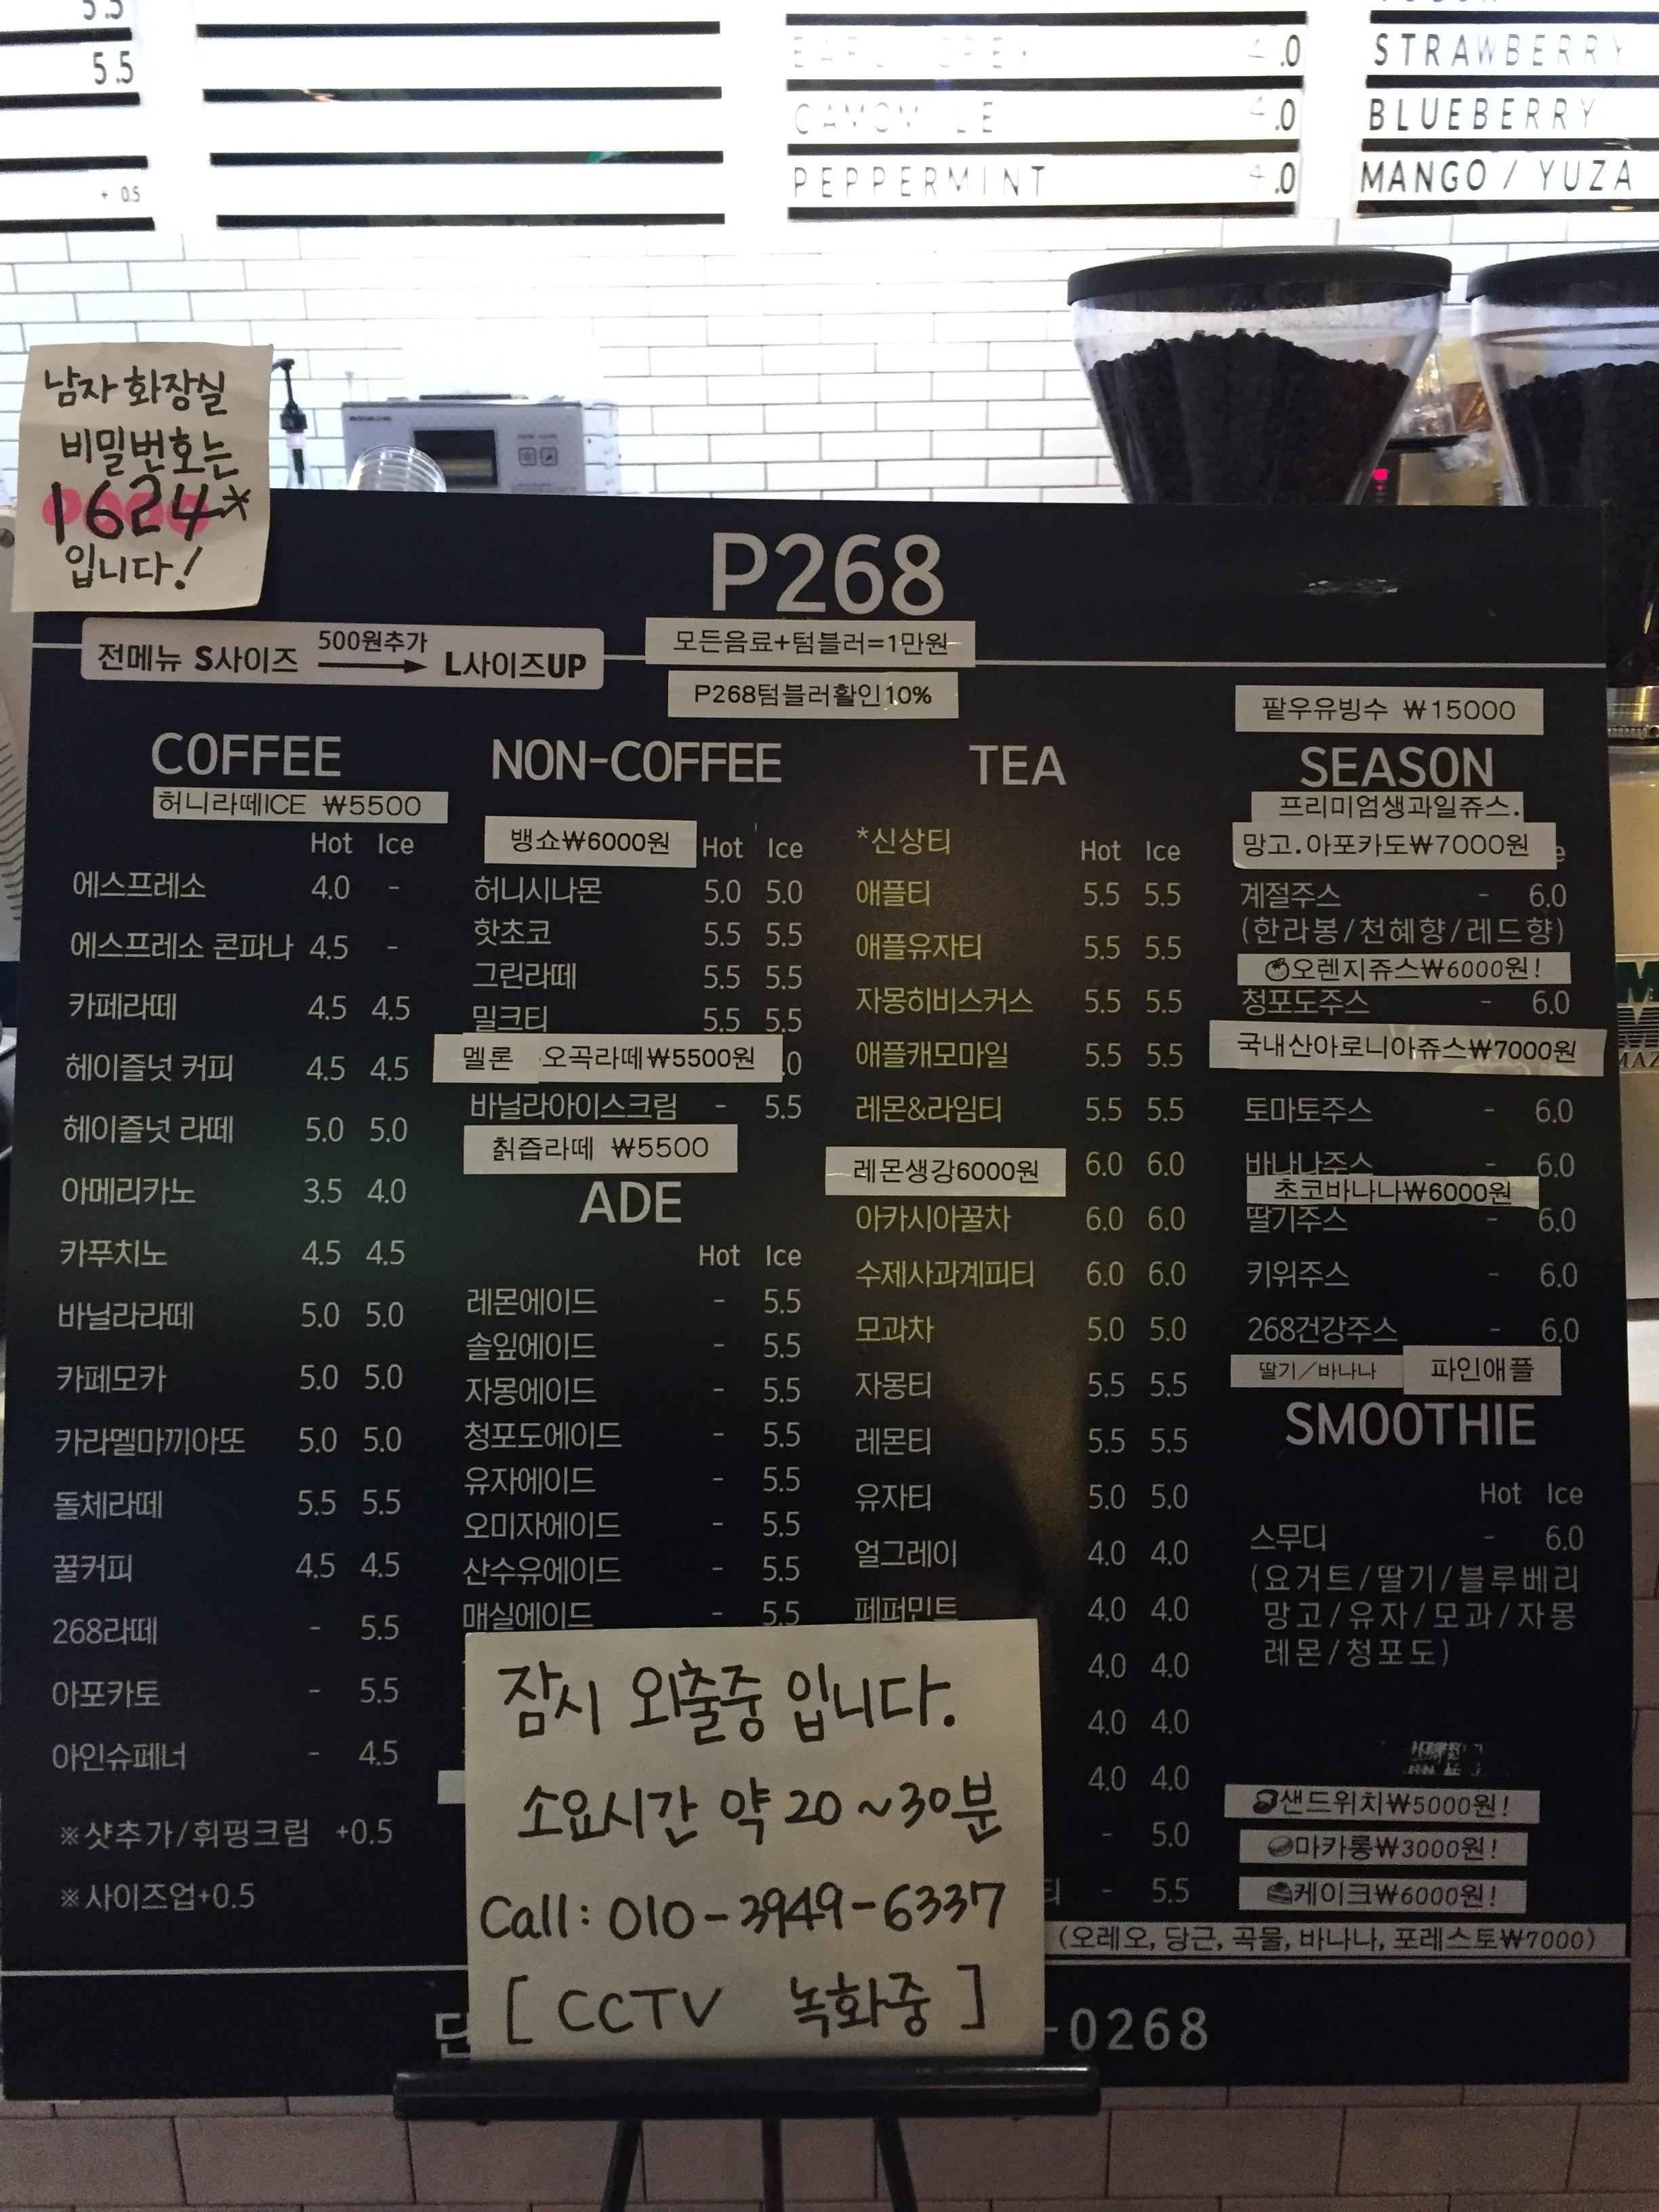 5.5
5.5
+ 0.5
EARL GREY 4.0
CAMOMILE 4.0
PEPPERMINT 4.0
STRAWBERRY
BLUEBERRY
MANGO / YUZA
남자 화장실
비밀번호는
1624*
입니다!
P268
전메뉴 S사이즈 500원추가 L사이즈UP
모든음료+텀블러=1만원
P268텀블러활인10%
COFFEE
허니라떼ICE ₩5500
Hot Ice
에스프레소 4.0 -
에스프레소 콘파나 4.5 -
카페라떼 4.5 4.5
헤이즐넛 커피 4.5 4.5
헤이즐넛 라떼 5.0 5.0
아메리카노 3.5 4.0
카푸치노 4.5 4.5
바닐라라떼 5.0 5.0
카페모카 5.0 5.0
카라멜마끼아또 5.0 5.0
돌체라떼 5.5 5.5
꿀커피 4.5 4.5
268라떼 - 5.5
아포카토 - 5.5
아인슈페너 - 4.5
※샷추가/휘핑크림 +0.5
※사이즈업+0.5
NON-COFFEE
뱅쇼₩6000원 Hot Ice
허니시나몬 5.0 5.0
핫초코 5.5 5.5
그린라떼 5.5 5.5
밀크티 5.5 5.5
멜론 오곡라떼₩5500원 .0
바닐라아이스크림 - 5.5
칡즙라떼 ₩5500
ADE
Hot Ice
레몬에이드 - 5.5
솔잎에이드 - 5.5
자몽에이드 - 5.5
청포도에이드 - 5.5
유자에이드 - 5.5
오미자에이드 - 5.5
산수유에이드 - 5.5
매실에이드 - 5.5
TEA
*신상티 Hot Ice
애플티 5.5 5.5
애플유자티 5.5 5.5
자몽히비스커스 5.5 5.5
애플캐모마일 5.5 5.5
레몬&라임티 5.5 5.5
레몬생강6000원 6.0 6.0
아카시아꿀차 6.0 6.0
수제사과계피티 6.0 6.0
모과차 5.0 5.0
자몽티 5.5 5.5
레몬티 5.5 5.5
유자티 5.0 5.0
얼그레이 4.0 4.0
페퍼민트 4.0 4.0
4.0 4.0
4.0 4.0
4.0 4.0
- 5.0
티 - 5.5
팥우유빙수 ₩15000
SEASON
프리미엄생과일쥬스.
망고.아포카도₩7000원 e
계절주스 - 6.0
(한라봉/천혜향/레드향)
오렌지쥬스₩6000원!
청포도주스 - 6.0
국내산아로니아쥬스₩7000원
토마토주스 - 6.0
바나나주스 - 6.0
초코바나나₩6000원
딸기주스 - 6.0
키위주스 - 6.0
268건강주스 - 6.0
딸기/바나나 파인애플
SMOOTHIE
Hot Ice
스무디 - 6.0
(요거트/딸기/블루베리
망고/유자/모과/자몽
레몬/청포도)
샌드위치₩5000원!
마카롱₩3000원!
케이크₩6000원!
(오레오, 당근, 곡물, 바나나, 포레스토₩7000)
잠시 외출중 입니다.
소요시간 약 20~30분
Call: 010-3949-6337
[ CCTV 녹화중 ]
단 -0268